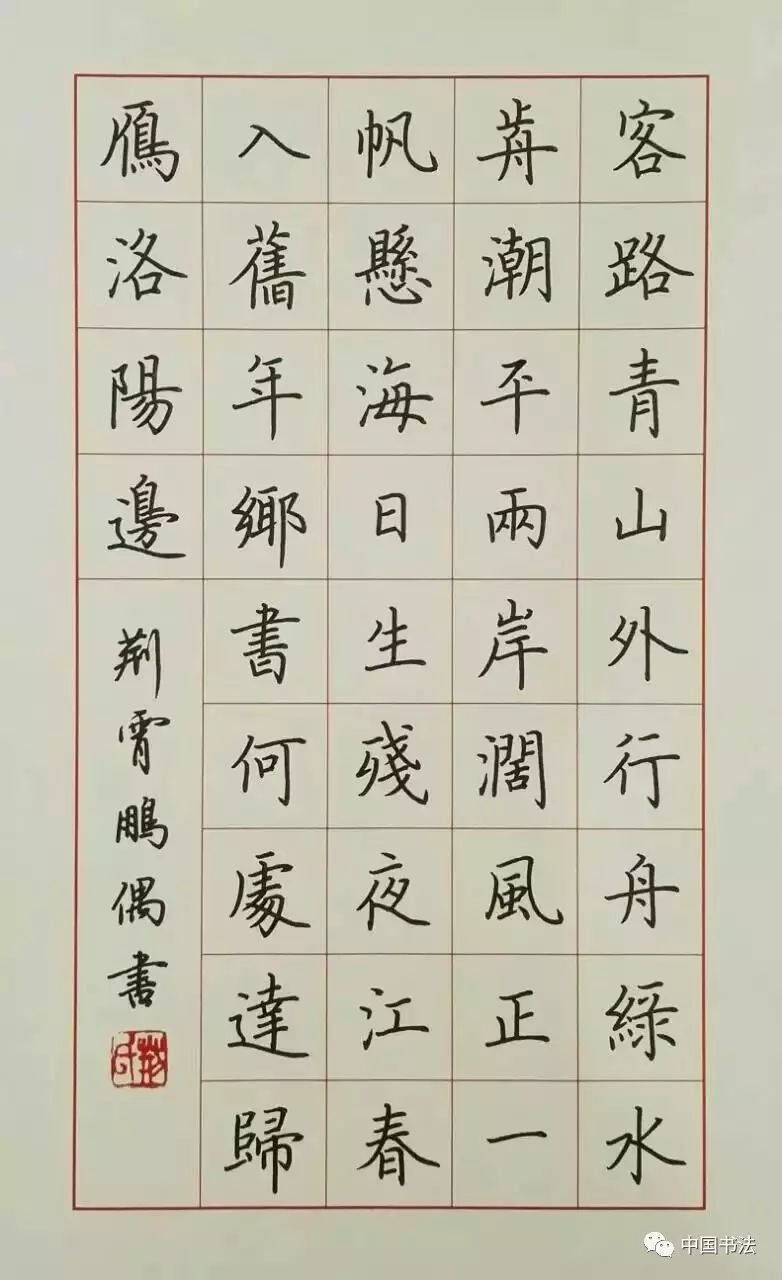 客路青山外行舟綠水
前潮平兩岸濶風正一
帆懸海日生殘夜江春
入舊年鄉書何處達歸
鴈洛陽邊
荆霄鵬偶書
中国书法